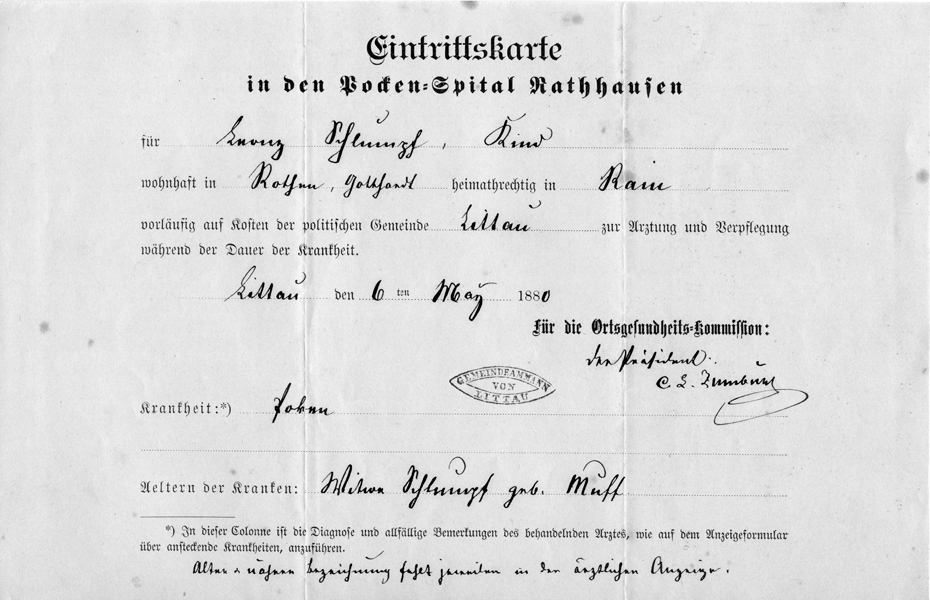 Eintrittskarte
in den Pocken-Spital Rathhausen
für Schlumpf, Kind
wohnhaft in Rothen, Gotthardt heimathrechtig in Rain
vorläufig auf Kosten der politischen Gemeinde Littau zur Arztung und Verpflegung
während der Dauer der Krankheit.
Littau den 6 ten May 1880
Für die Ortsgesundheits-Kommission:
der Präsident:
GEMEINDEAMMANN
VON
LITTAU
Krankheit:*) Poken
Aeltern der Kranken: Witwe Schlumpf geb. Muff
*) In dieser Colonne ist die Diagnose und allfällige Bemerkungen des behandelnden Arztes, wie auf dem Anzeigeformular
über ansteckende Krankheiten, anzuführen.
Alter u nähere Bezeichnung fehlt jeweilen in der ärztlichen Anzeige.